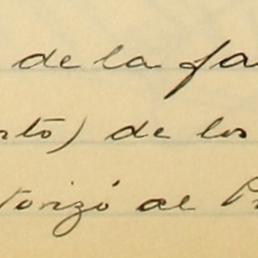 de la fa
rto) de los
torizó al P